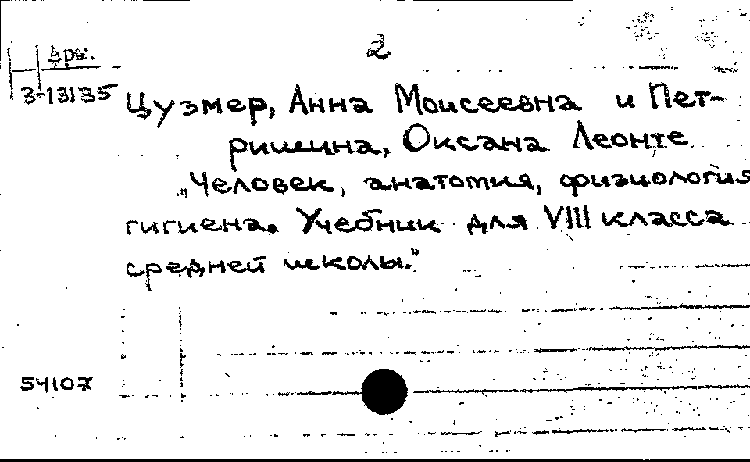 2
Арм.
З-13135
Цузмер, Анна Моисеевна и Пет-
ришина, Оксана Леонте
„Человек, анатомия, физиология
гигиена. Учебник для VIII класса
средней школы."
54107